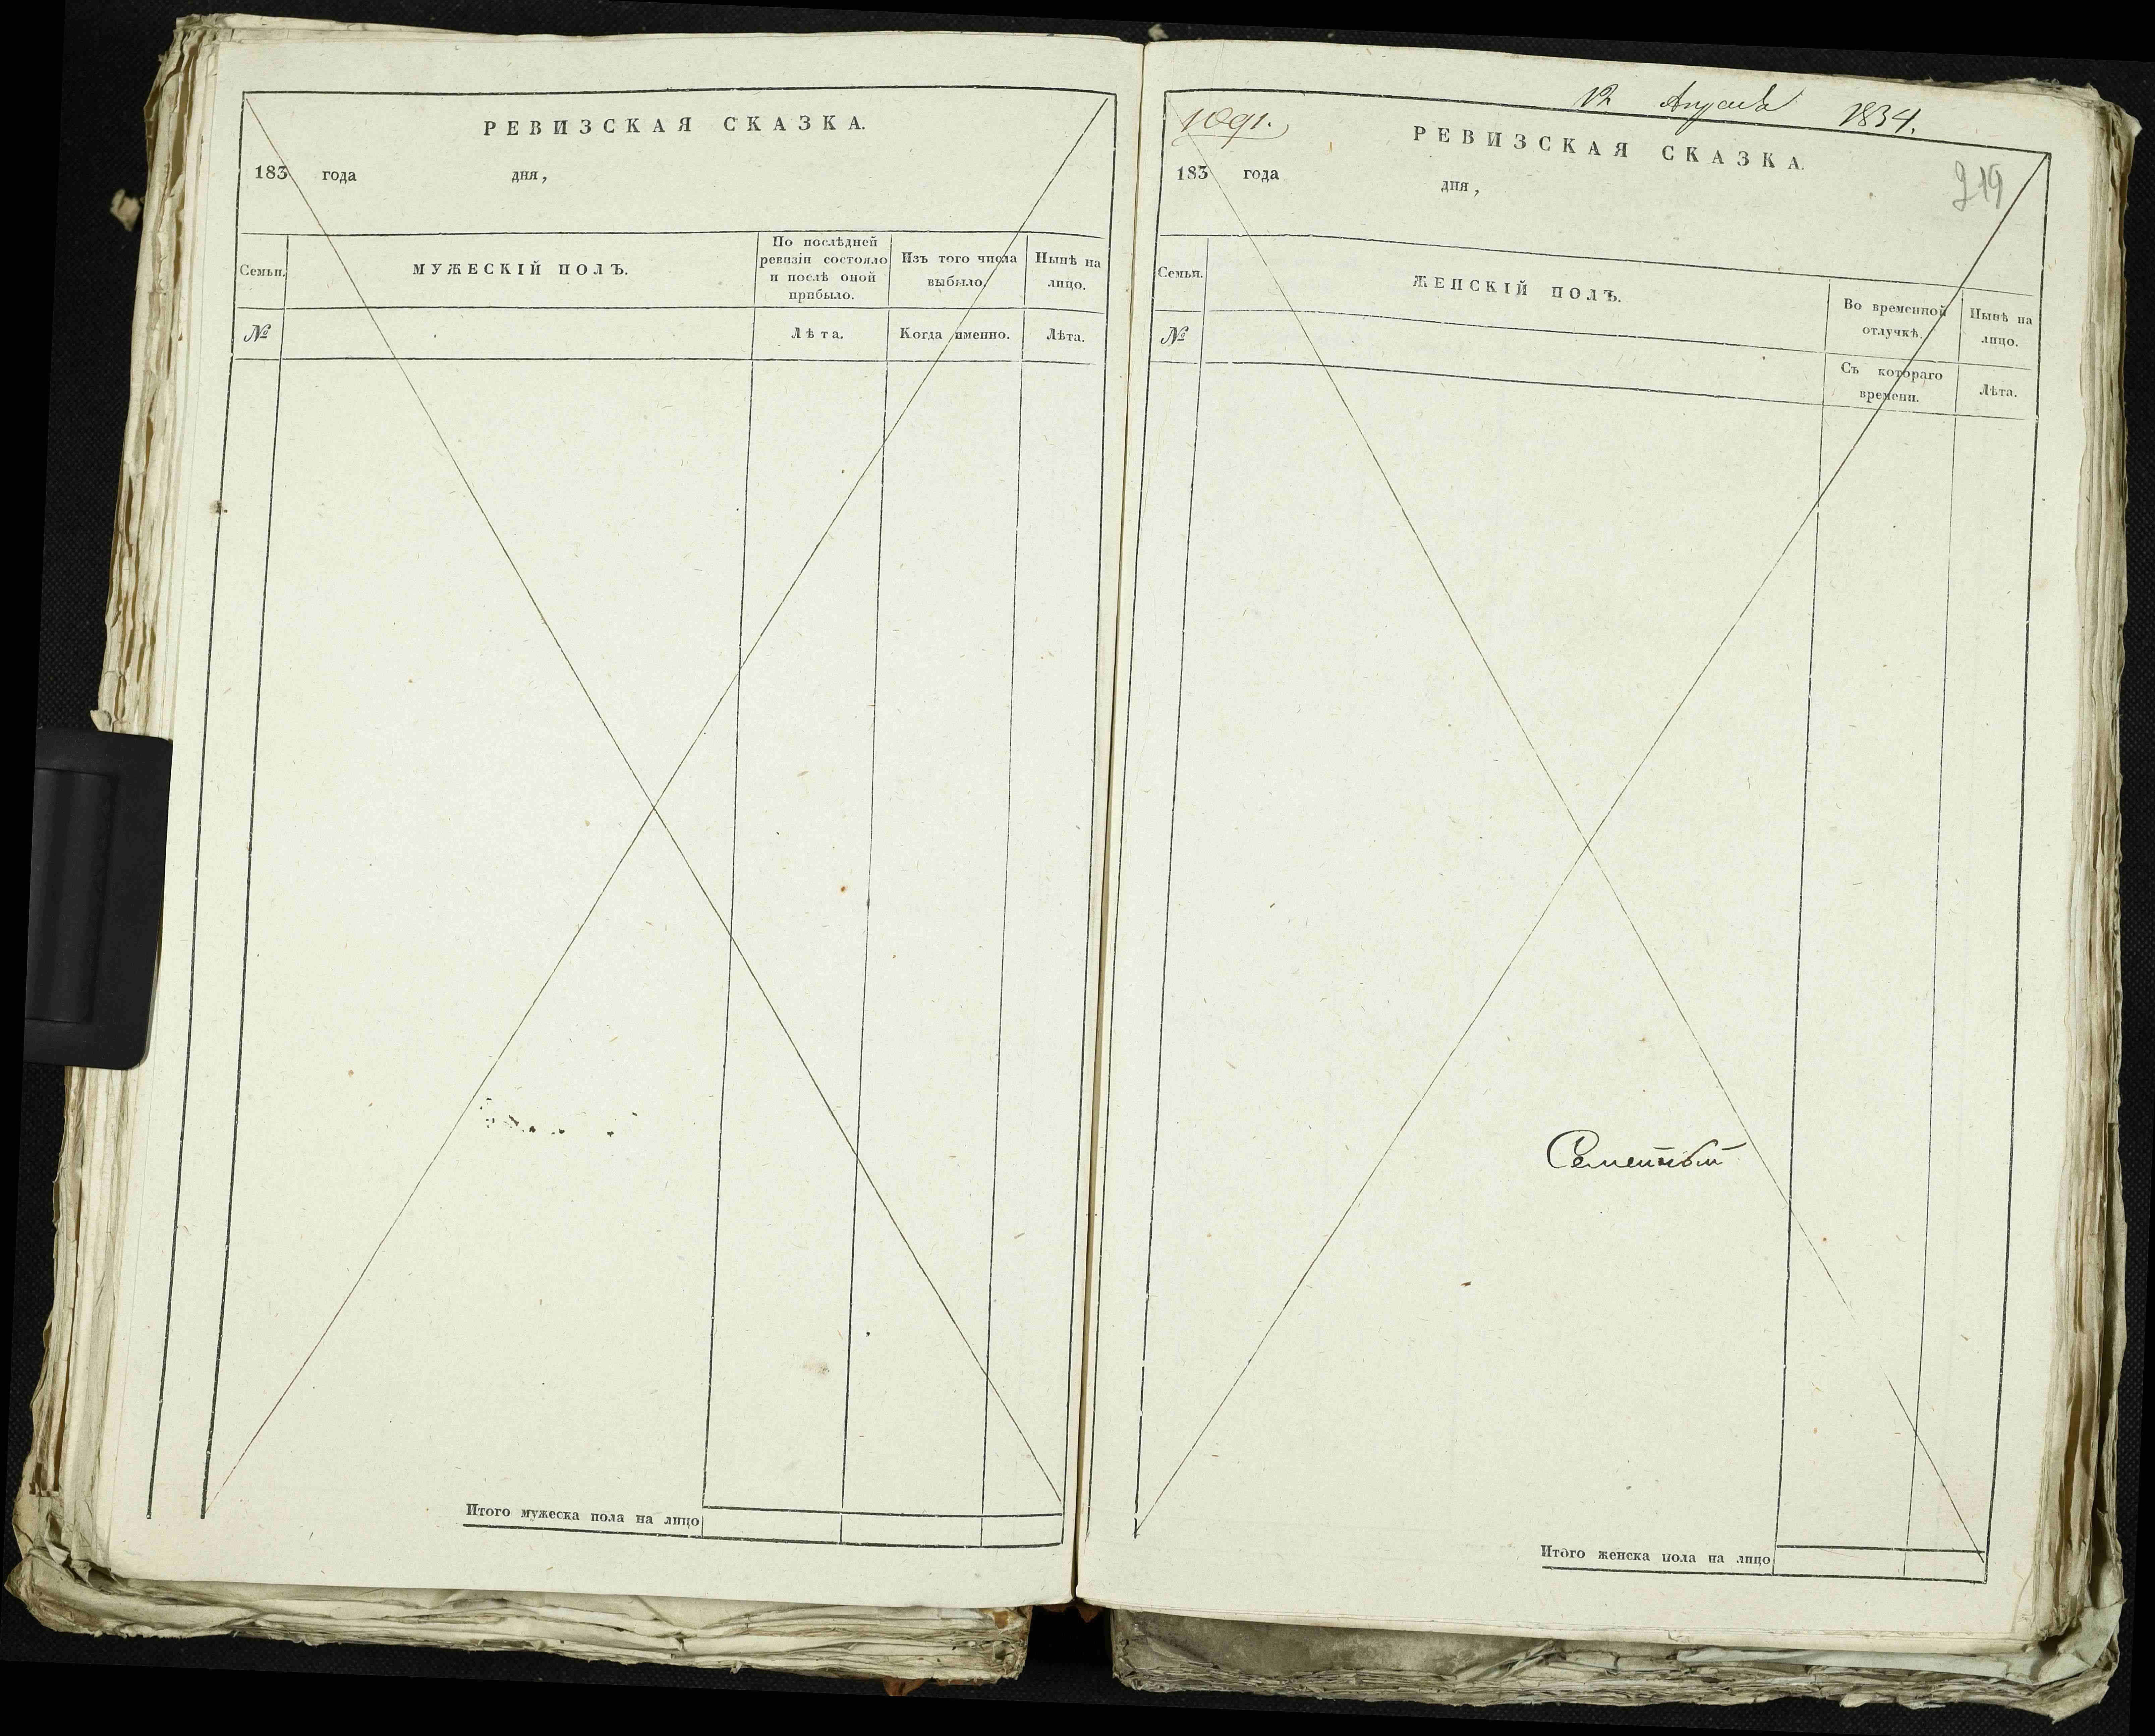 РЕВИЗСКАЯ СКАЗКА.
183 года дня,
Семьи.
МУЖЕСКІЙ ПОЛЪ.
По послѣдней
ревизіи состояло
и послѣ оной
прибыло.
Изъ того числа
выбыло.
Нынѣ на
лицо.
№
Лѣта.
Когда именно.
Лѣта.
Итого мужеска пола на лицо
12 1834.
1091.
РЕВИЗСКАЯ СКАЗКА.
219
183 года дня,
Семьи.
ЖЕНСКІЙ ПОЛЪ.
Во временной
отлучкѣ.
Нынѣ на
лицо.
№
Съ котораго
времени.
Лѣта.
Итого женска пола на лицо